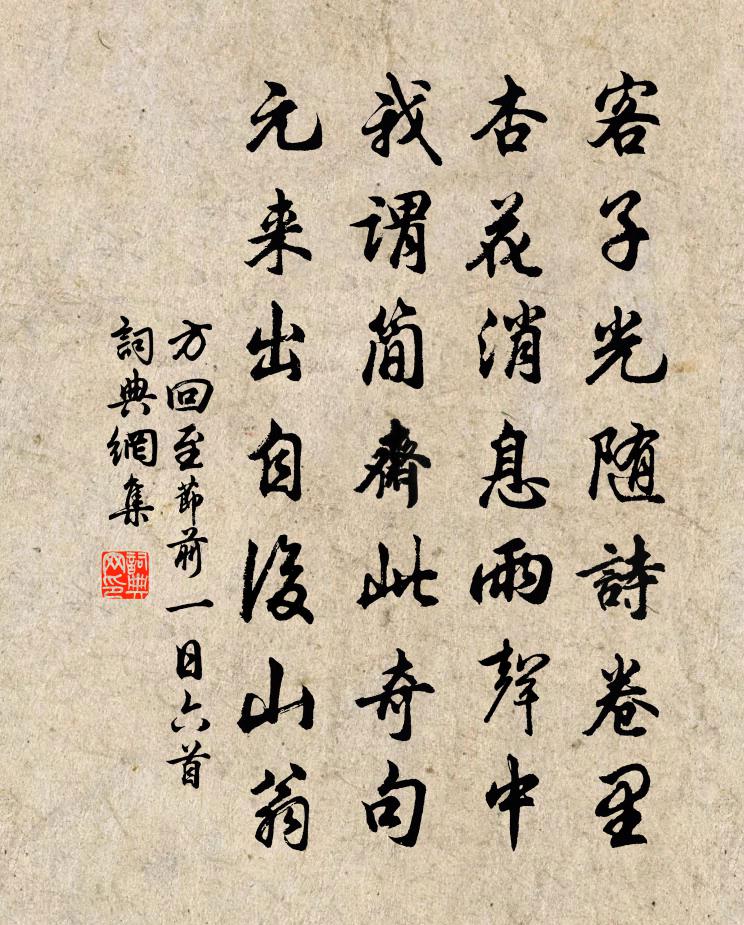 客子光随詩卷里
杏花消息雨聲中
我谓简齋此奇句
元来出自後山翁
方回至節前一日六首
詞典網集
詞典网印